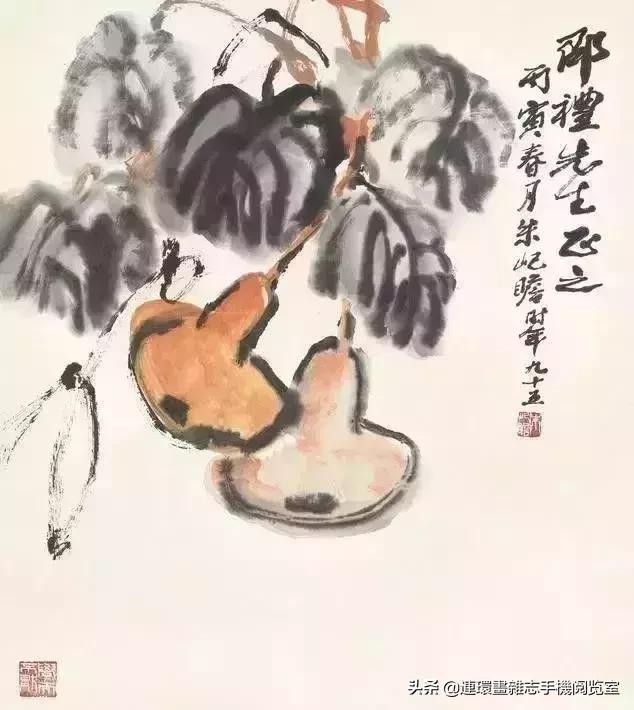 邵禮先生正之
丙寅春月朱屺瞻时年九十五
头条 @連環畫雜志手機阅览室